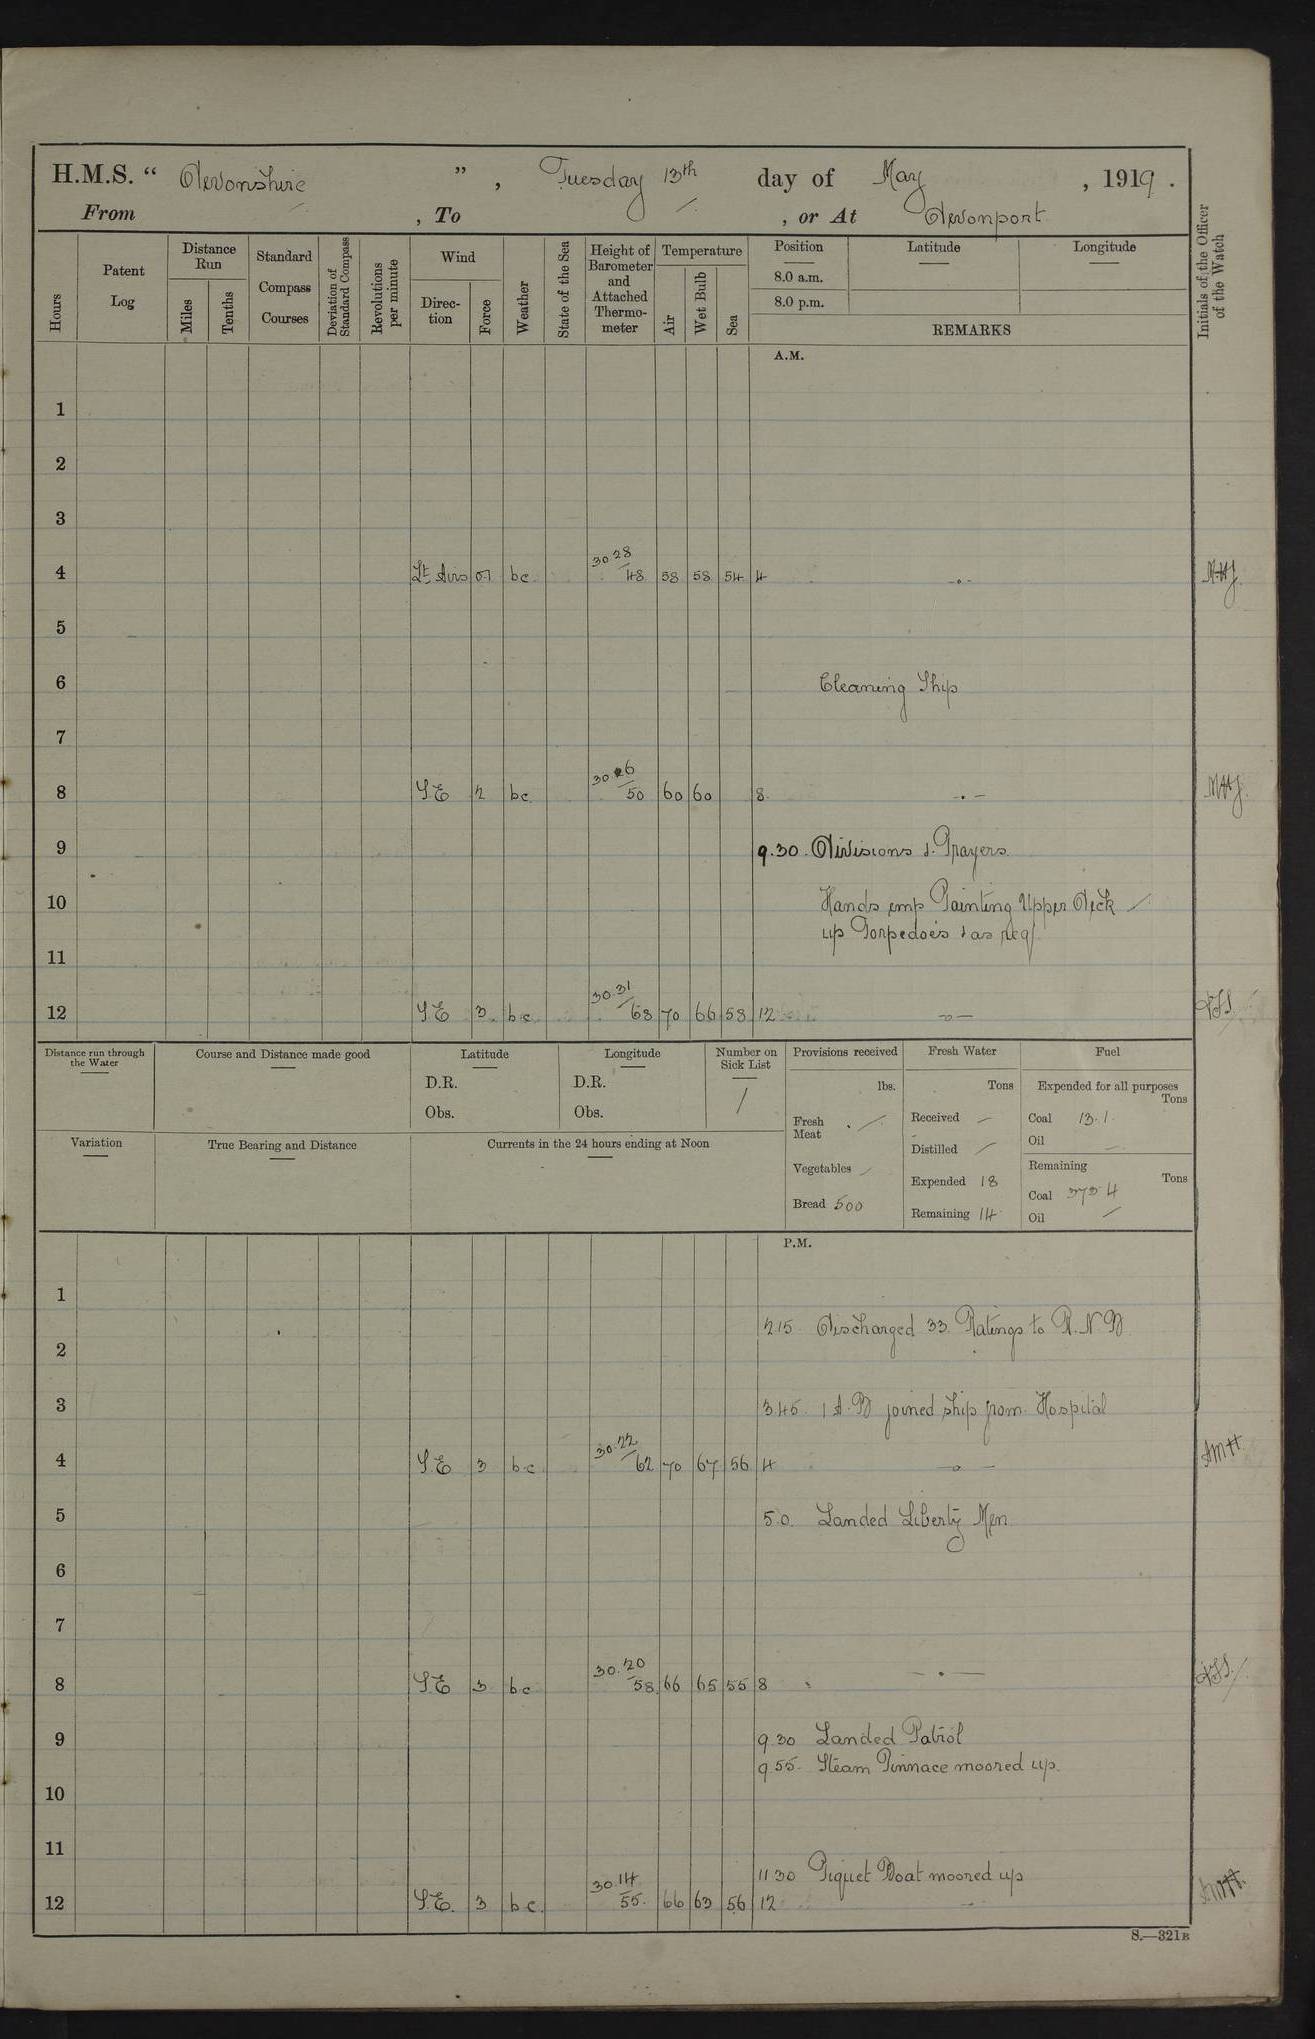 H.M.S. “ Devonshire ” , Tuesday 13th day of May , 1919 .
From , To , or At Devonport
Hours
Patent Log
Distance Run
Miles
Tenths
Standard Compass Courses
Deviation of Standard Compass
Revolutions per minute
Wind
Direc-tion
Force
Weather
State of the Sea
Height of Barometer and Attached Thermo-meter
Temperature
Air
Wet Bulb
Sea
Position
8.0 a.m.
8.0 p.m.
Latitude
Longitude
REMARKS
Initials of the Officer of the Watch
A.M.
1
2
3
4 Lt Airs 0.1 bc 30.28 48 58 58 54 4
5
6 Cleaning Ship
7
8 S.E 2 bc 30.26 50 60 60 8
9 9.30. Divisions & Prayers
10 Hands emp Painting Upper Deck
up Torpedoes & as req
11
12 S.E 3 bc 30.31 68 70 66 58 12
Distance run through the Water
Course and Distance made good
Latitude
D.R.
Obs.
Longitude
D.R.
Obs.
Number on Sick List
1
Variation
True Bearing and Distance
Currents in the 24 hours ending at Noon
Provisions received
lbs.
Fresh Meat
Vegetables
Bread 500
Fresh Water
Tons
Received
Distilled
Expended 18
Remaining 14
Fuel
Expended for all purposes
Tons
Coal 13.1
Oil
Remaining
Tons
Coal
Oil
P.M.
1
2.15 Discharged 33 Ratings to R.N.B
2
3 3.45 1 A.B joined ship from Hospital
4 S.E 3 bc 30.22 62 70 67 56 4
5 5.0. Landed Liberty Men
6
7
8 S.E 3 bc 30.20 58 66 65 55 8
9 9.30 Landed Patrol
9.55. Steam Pinnace moored up.
10
11
11 30 Piquet Boat moored up
12 S.E. 3 bc. 30.14 55. 66 63 56 12
S.—321B